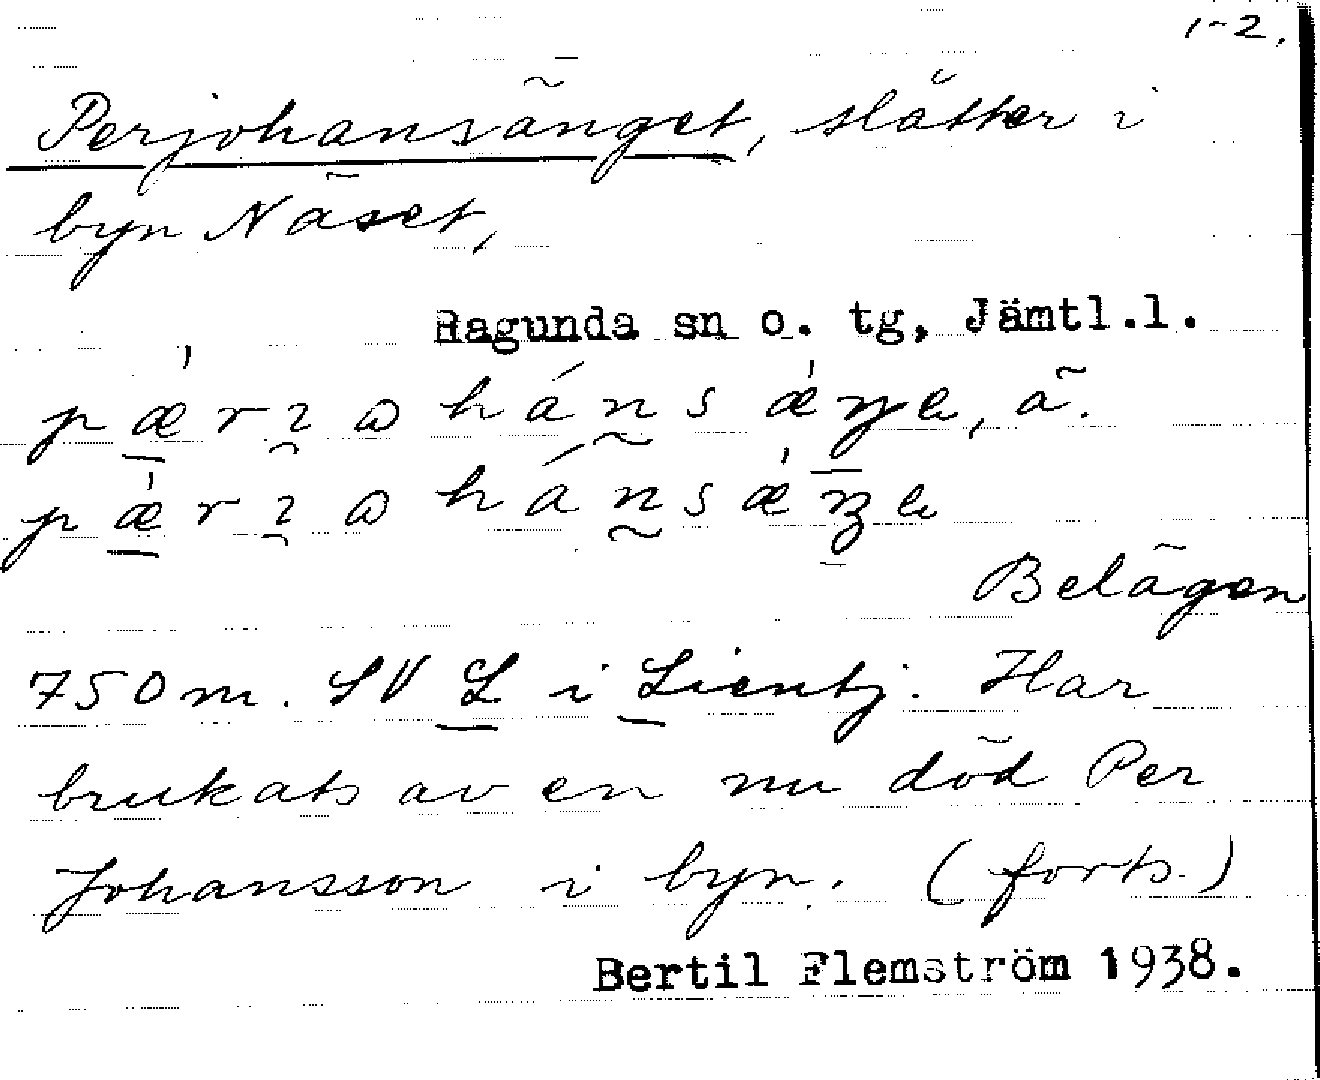 1-2.
Perjohansänget, slåtter i
byn Näset,
Ragunda sn o. tg, Jämtl.l.
pæ̀rɩωhánsæ̀ŋe, ä.
pæ̀rɩωhánsæ̀ŋe
Belägen
750 m. SV L i Lientj. Har
brukats av en nu död Per
Johansson i byn. (forts.)
Bertil Flemström 1938.